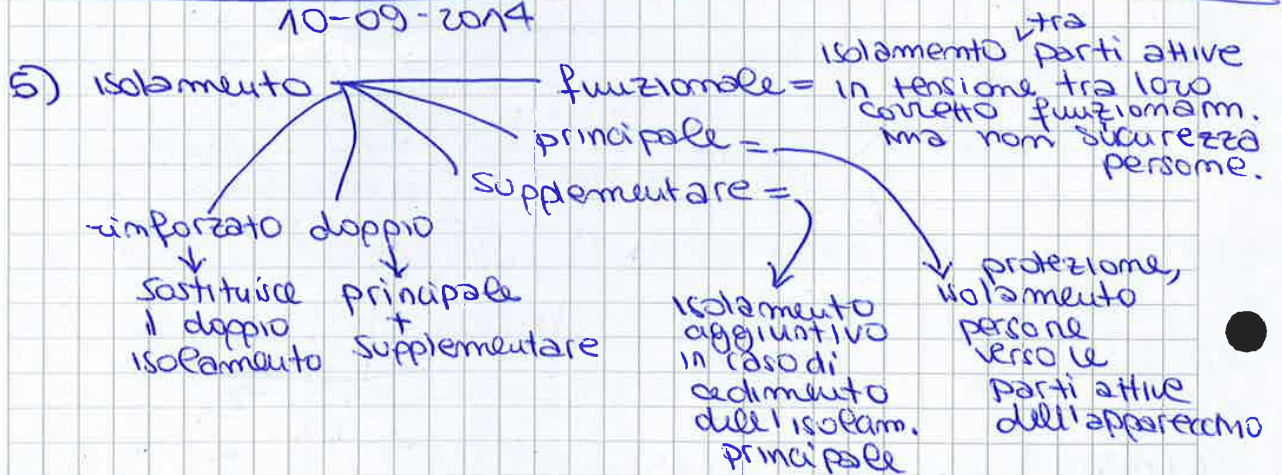 10-09-2014
5) isolamento
funzionale = isolamento tra parti attive
in tensione tra loro
corretto funzionam.
ma non sicurezza
persone.
principale =
supplementare =
rinforzato doppio
sostituisce
il doppio
isolamento
principale
+
supplementare
isolamento
aggiuntivo
in caso di
cedimento
dell'isolam.
principale
protezione,
isolamento
persone
verso le
parti attive
dell'apparecchio